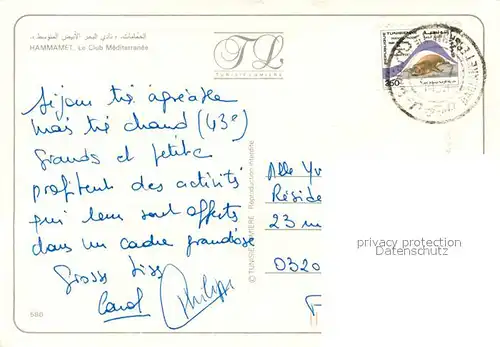 الحمّامات، « نادي البحر الأبيض المتوسط ».
HAMMAMET, Le Club Méditerranée
TL
TUNISIE LUMIERE
350
Séjour très agréable
mais très chaud (43°)
Grands et petits
profitent des activités
qui leur sont offertes
dans un cadre grandiose
Gross Biss
Carol Philippe
© TUNISIE LUMIERE Reproduction interdite
Mlle Yv
Réside
23
0320
F
privacy protection
Datenschutz
588